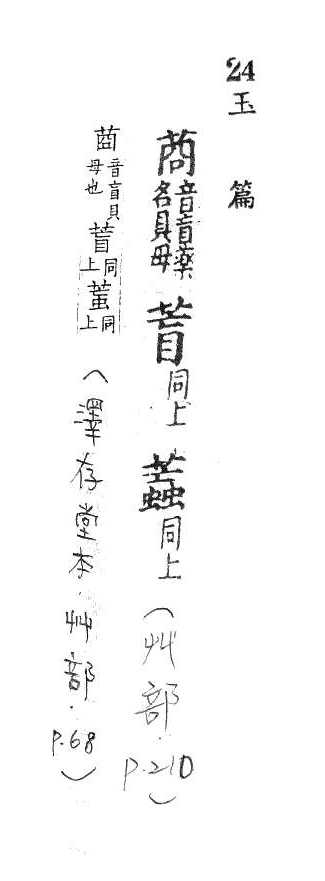 24 玉篇
莔 音盲藥名貝母 同上 同上 (艸部．P.210)
莔 音盲貝母也 同上 同上 (澤存堂本．艸部．P.68)